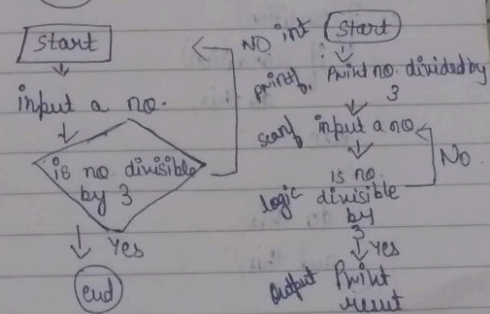 Start
input a no.
is no divisible
by 3
Yes
end
NO
int
Start
printf
Print no. divided by
3
scanf
input a no
No
logic
is no
divisible
by
3
Yes
output
Print